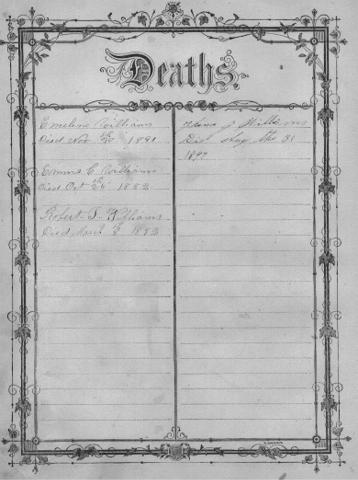 Deaths.
Emeline Williams
Died Nov th 1881
Emma C. Williams
Died Oct th 1882
Robert S. Williams
Died March 1882
J Williams
Died Aug the 31
1897